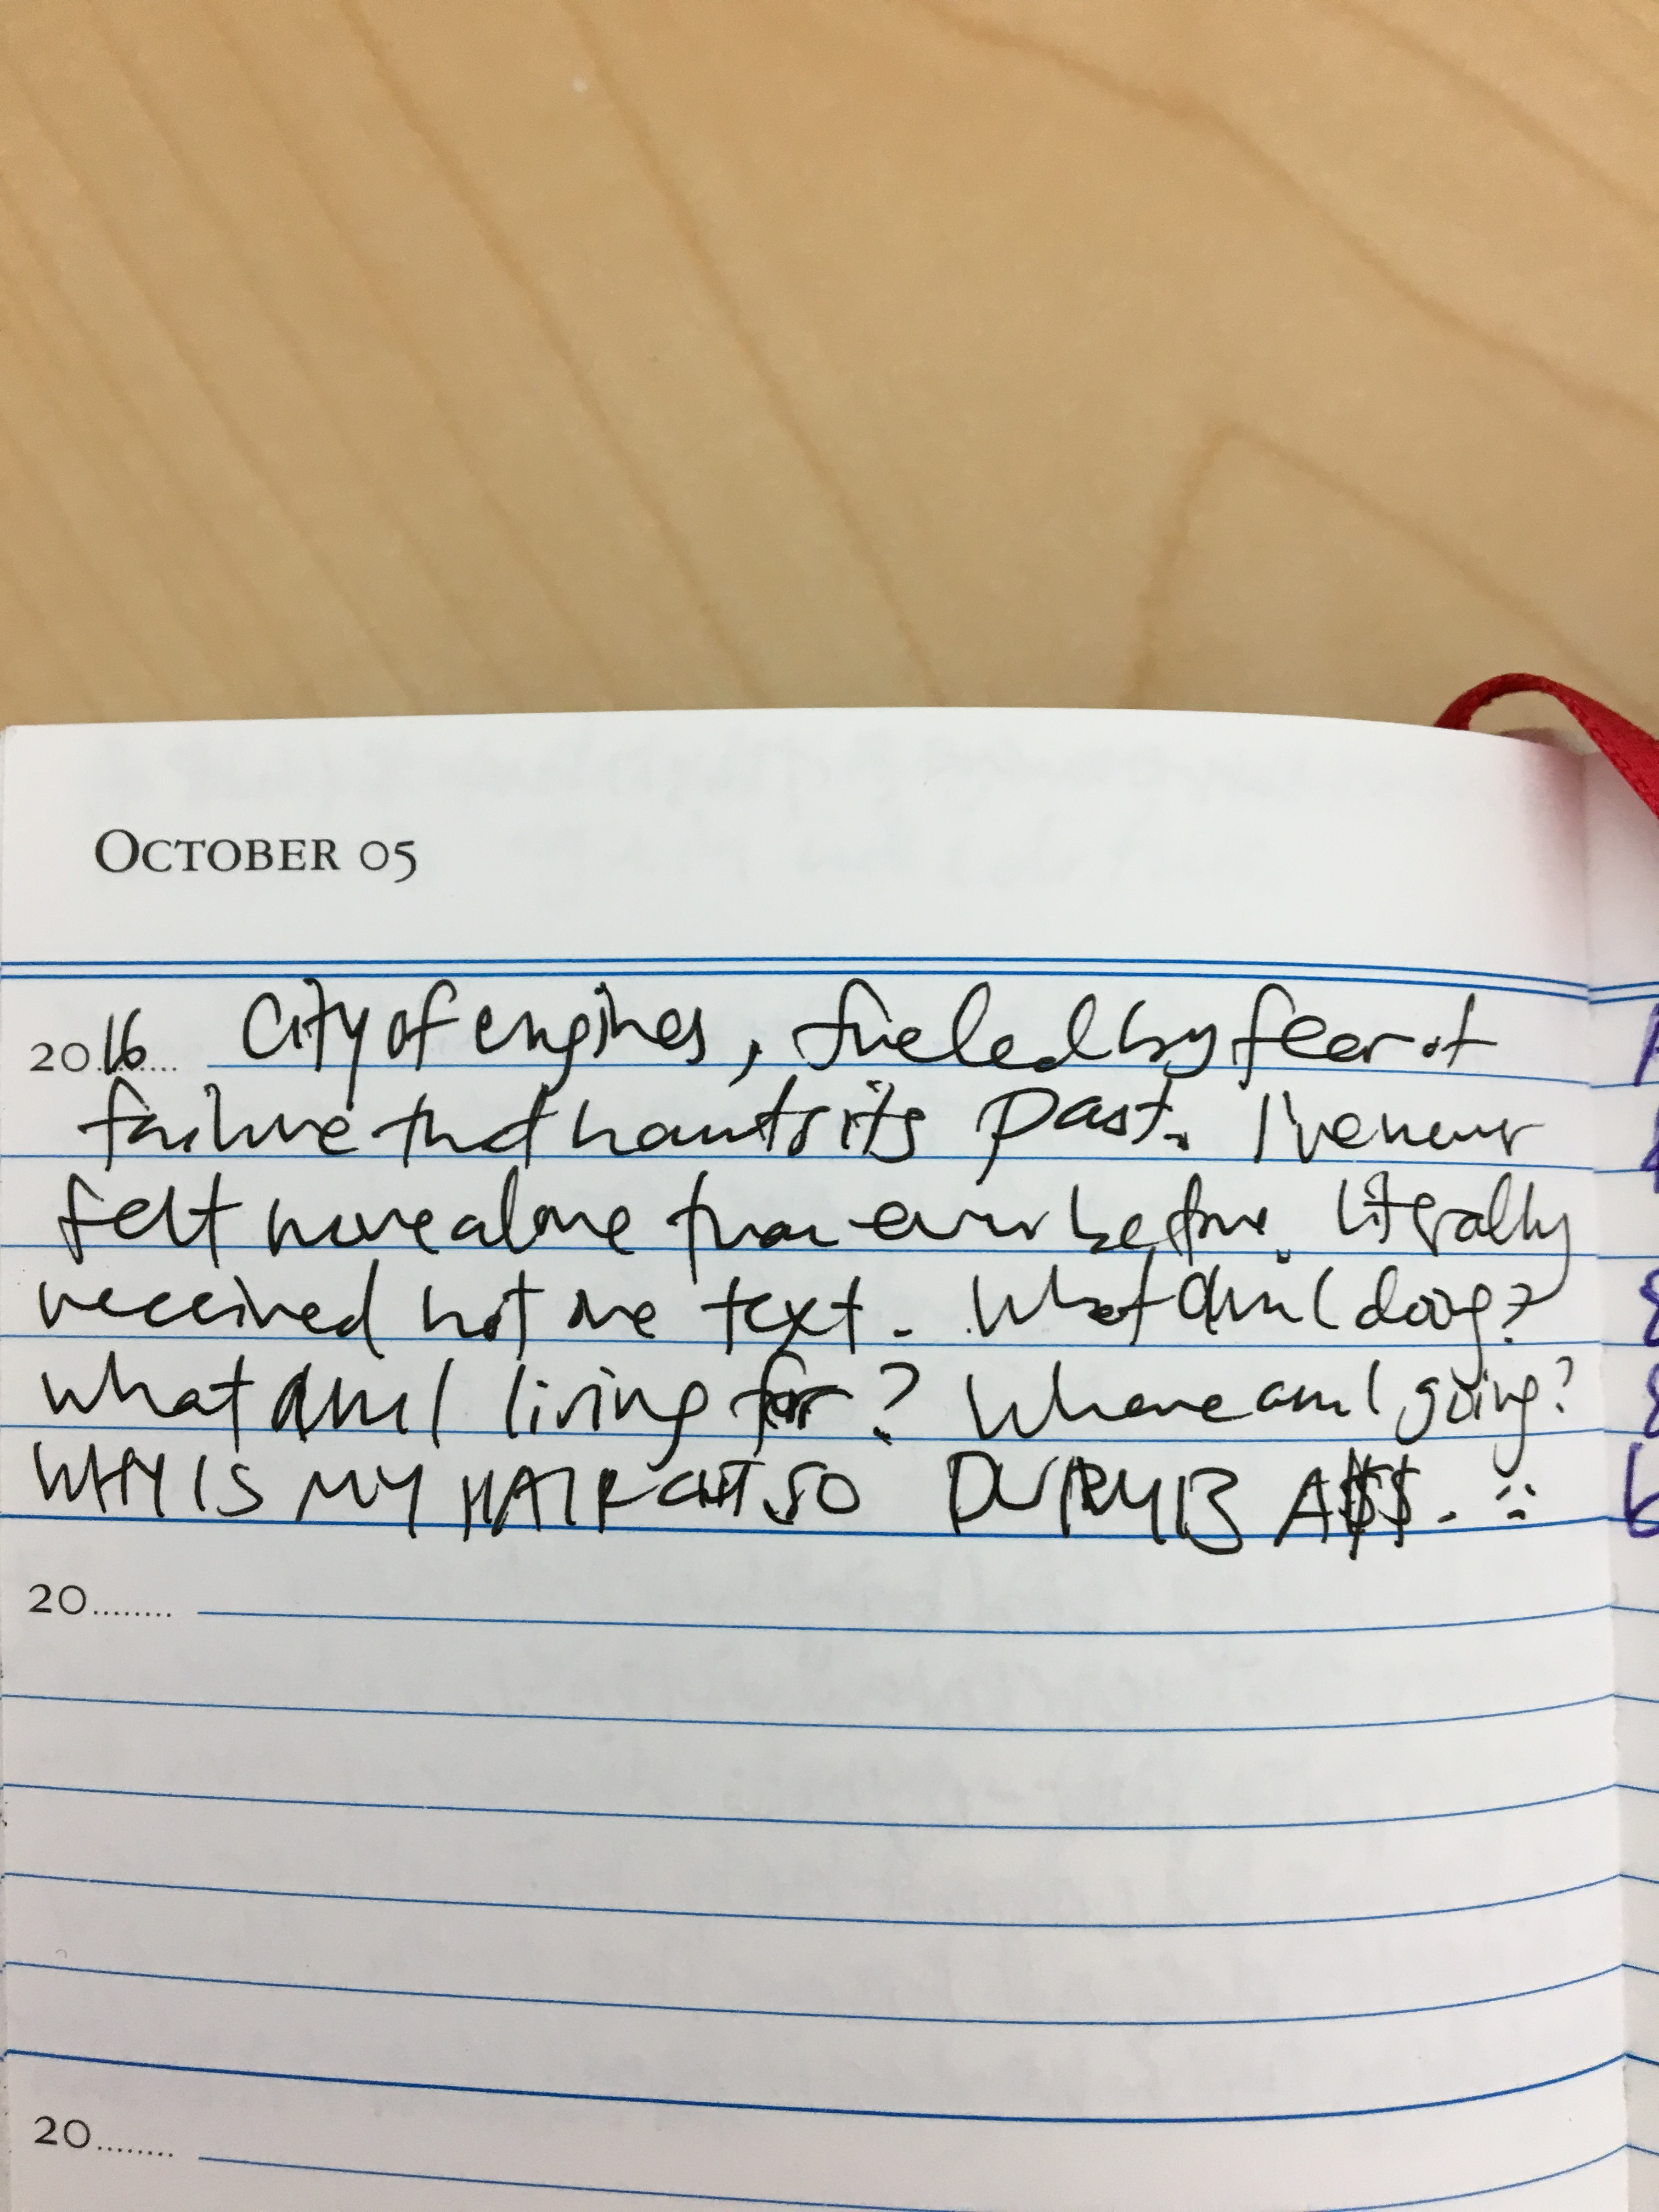 OCTOBER 05
2016 City of engines, fueled by fear of
failure that haunts its past. I've never
felt more alone than ever before. Literally
received not one text. What am I doing?
what am I living for? Where am I going?
WHY IS MY HAIRCUT SO A$$. :
20........
20........